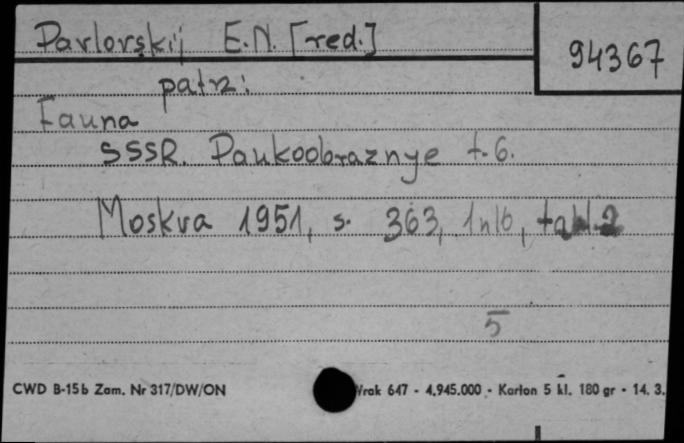 Pavlovskij E.N. [red.]
94367
patrz:
Fauna
SSSR. Paukoobraznye t. 6.
Moskva 1951, s. 363, 1 nlb, tabl. 2
5
CWD B-15b Zam. Nr 317/DW/ON
rak 647 - 4.945.000 - Karton 5 kl. 180 gr - 14. 3.